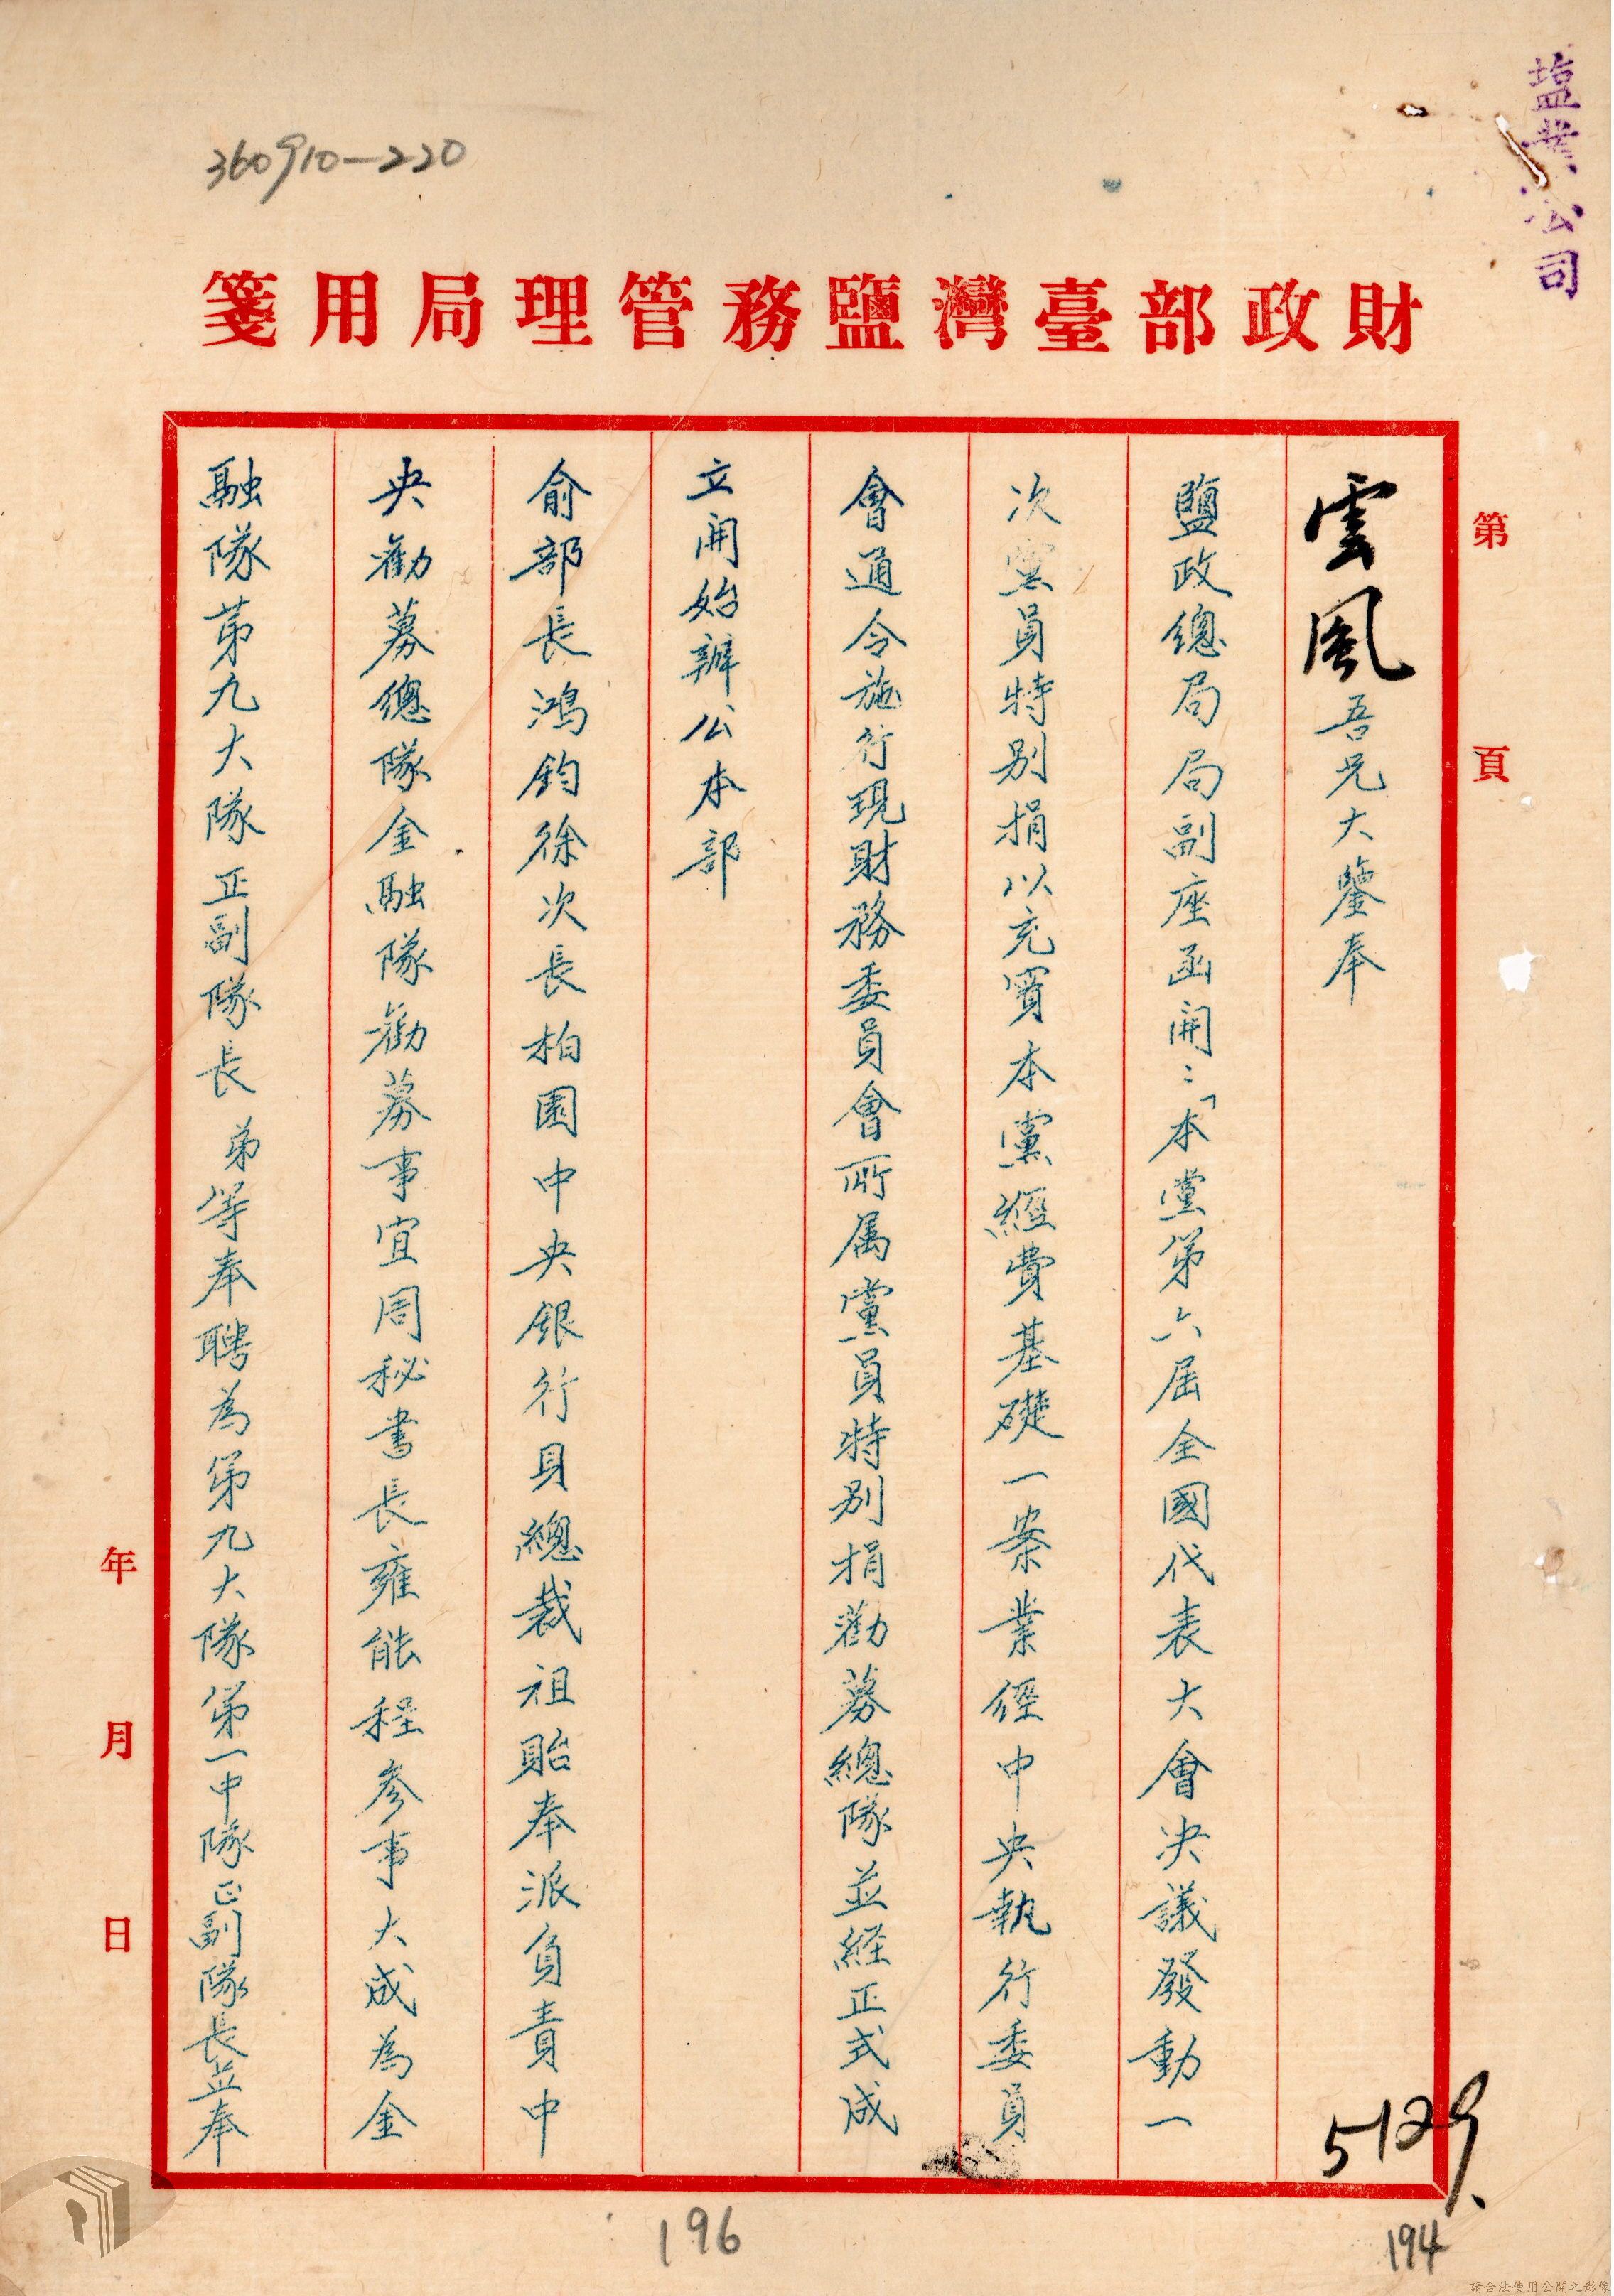 塩業公司
360910-220
財政部臺灣鹽務管理局用箋
第 頁
雲風吾兄大鑒奉
鹽政總局局副座函開：「本黨第六屆全國代表大會決議發動一
次黨員特別捐以充實本黨經費基礎一案業經中央執行委員
會通令施行現財務委員會所属黨員特別捐勸募總隊並経正式成
立開始辦公本部
俞部長鴻鈞徐次長柏園中央銀行貝總裁祖貽奉派負責中
央勸募總隊金融隊勸募事宜周秘書長雍能程參事大成為金
融隊第九大隊正副隊長弟等奉聘為第九大隊第一中隊正副隊長並奉
年 月 日
5129
196
194
請合法使用公開之影像